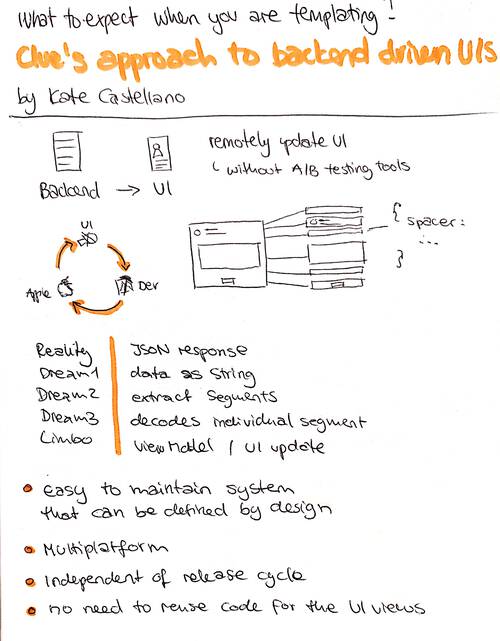 What to expect when you are templating!
Clue's approach to backend driven UIs
by Kate Castellano
remotely update UI
└ without A/B testing tools
Backend → UI
UI
Apple
Dev
{
spacer:
...
}
Reality JSON response
Dream1 data as String
Dream2 extract Segments
Dream3 decodes individual segment
Limbo ViewModel / UI update
• easy to maintain system
that can be defined by design
• Multiplatform
• Independent of release cycle
• no need to reuse code for the UI views